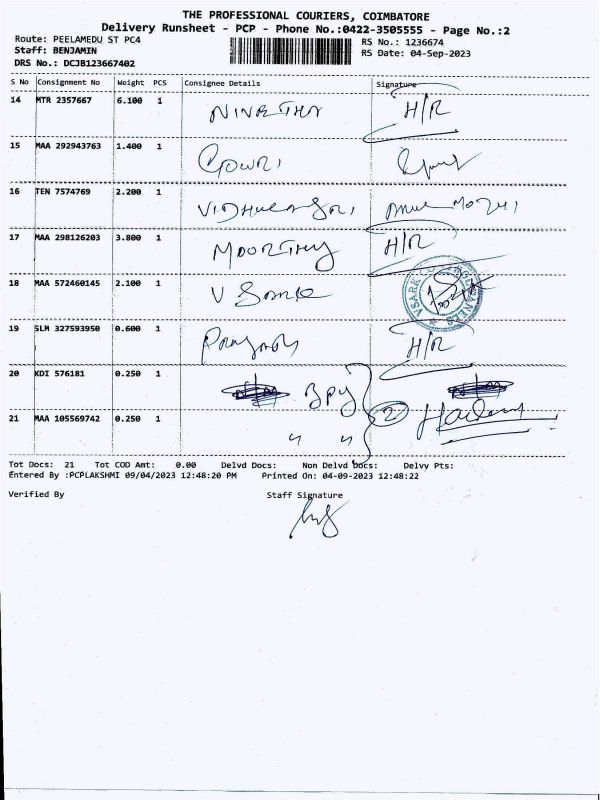 THE PROFESSIONAL COURIERS, COIMBATORE
Delivery Runsheet - PCP - Phone No.:0422-3505555 - Page No.:2
Route: PEELAMEDU ST PC4
RS No.: 1236674
Staff: BENJAMIN
RS Date: 04-Sep-2023
DRS No.: DCJB123667402
S No Consignment No Weight PCS Consignee Details Signature
14 MTR 2357667 6.100 1 H/R
15 MAA 292943763 1.400 1 Gowri
16 TEN 7574769 2.200 1
17 MAA 298126203 3.800 1 MOORTHY H/R
18 MAA 572460145 2.100 1
19 SLM 327593950 0.600 1 H/R
20 KDI 576181 0.250 1
21 MAA 105569742 0.250 1 " " 2
Tot Docs: 21 Tot COD Amt: 0.00 Delvd Docs: Non Delvd Docs: Delvy Pts:
Entered By :PCPLAKSHMI 09/04/2023 12:48:20 PM Printed On: 04-09-2023 12:48:22
Verified By Staff Signature